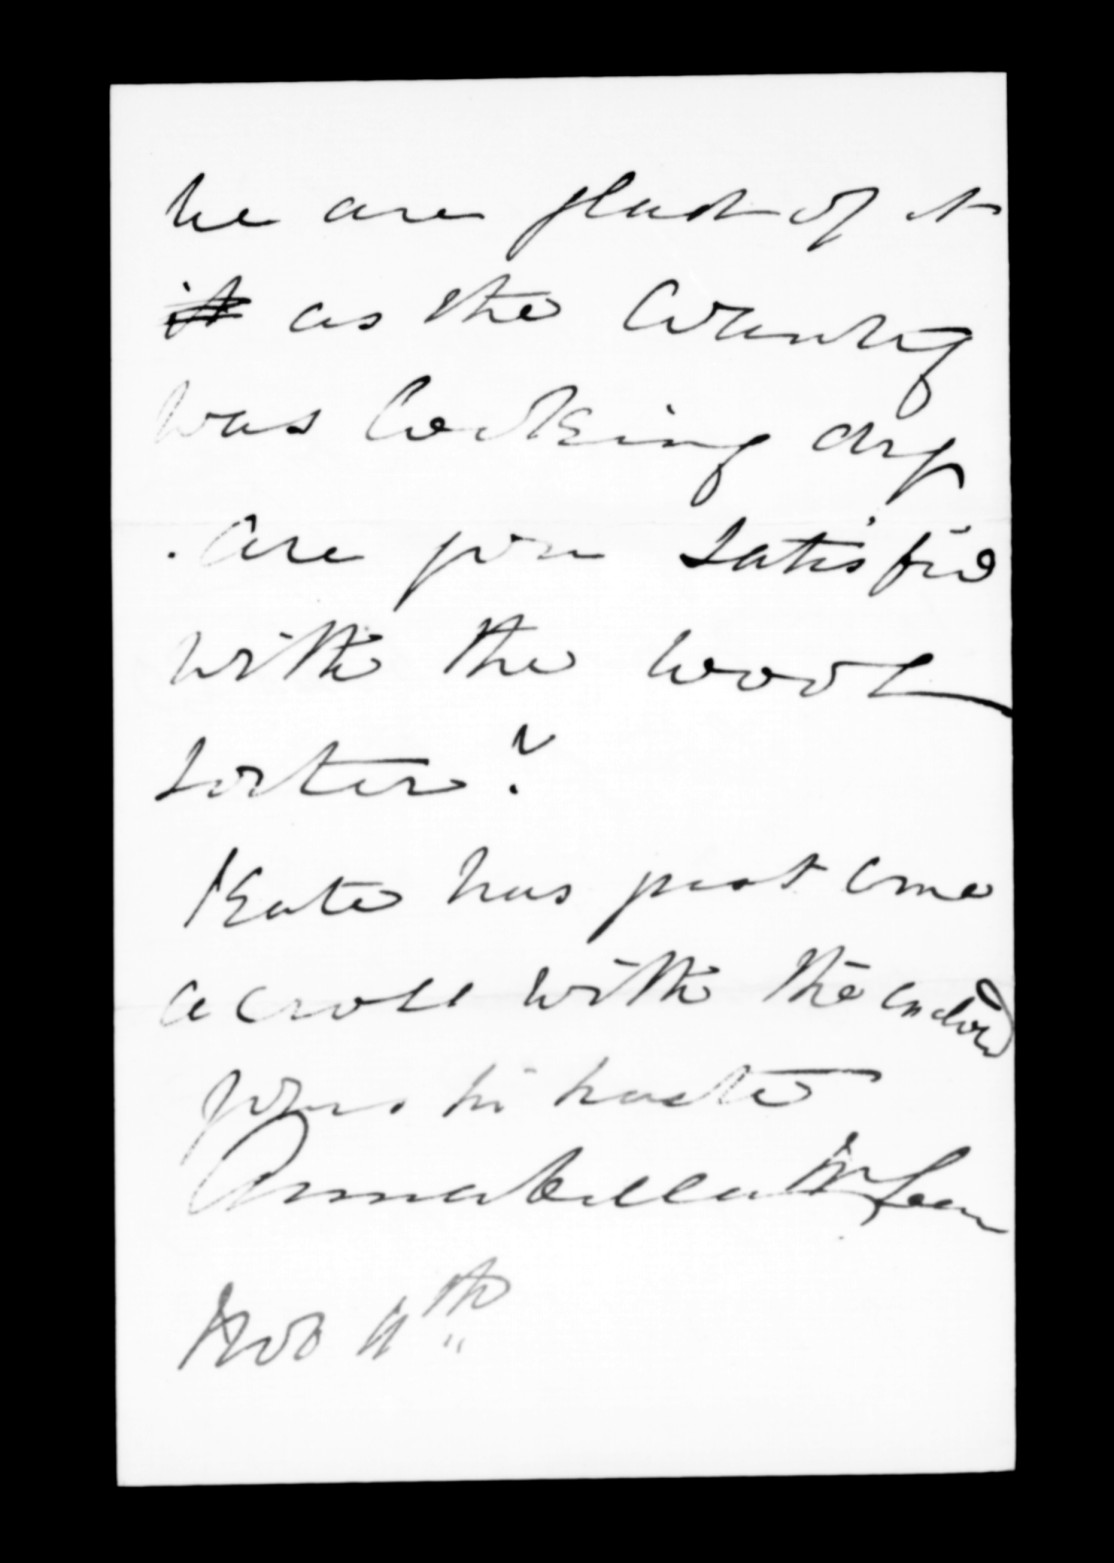 We are glad of it
it as the Country
was looking dry
. Are you satisfied
with the wool
sorter?
Kate has just come
across with the enclosed
yours in haste
Annabella McLean
Nov 11th